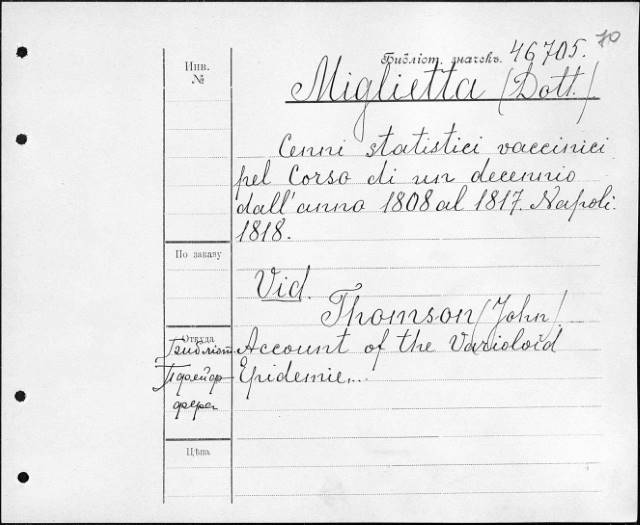 Библіот. значекъ. 46705. 70
Инв.
№
Miglietta (Dott.)
Cenni statistici vaccinici
pel Corso di un decennio
dall'anno 1808 al 1817. Napoli.
1818.
По заказу
Vid.
Thomson (John)
Откуда
Библіот Account of the Varioloid
Epidemie...
Цѣна